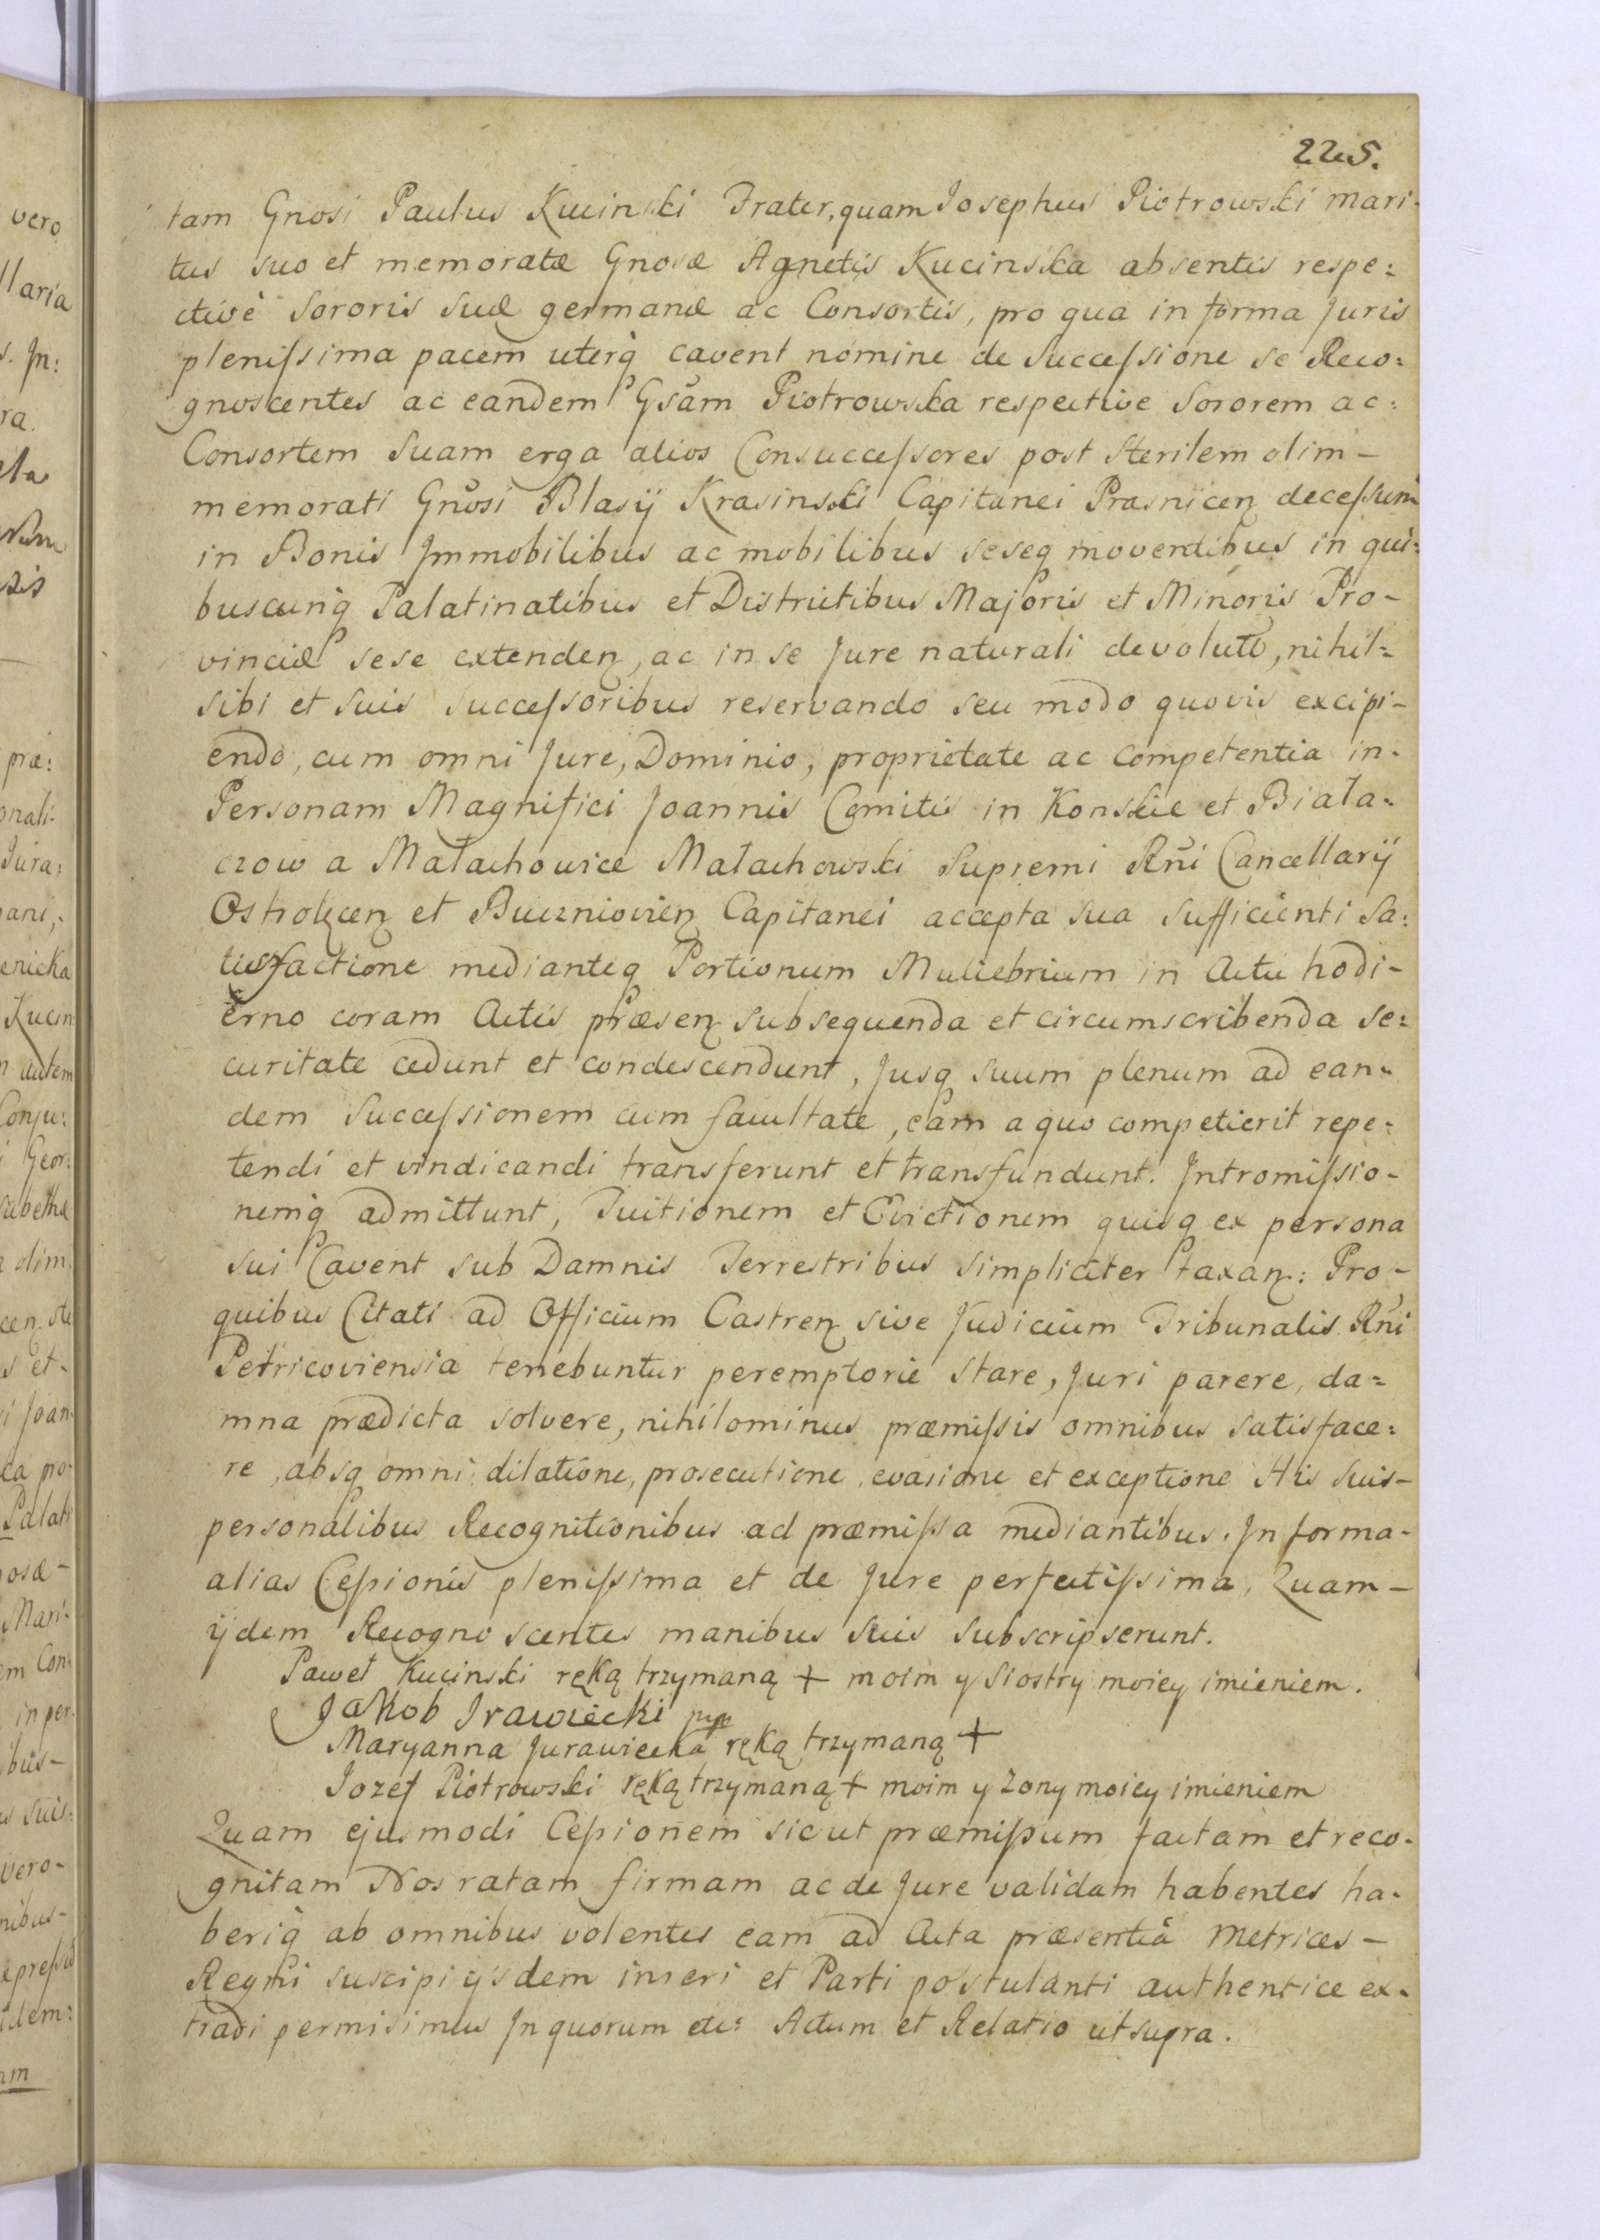 225.
tam Gnosi Paulus Kucinski Frater, quam Josephus Piotrowski mari-
tus suo et memoratæ Gnosæ Agnetis Kucinska absentis respe=
ctivè Sororis suæ germanæ ac Consortis, pro qua in forma Juris
plenissima pacem uterq cavent nomine de Successione se Reco=
gnoscentes ac eandem Gsam Piotrowska respective Sororem ac=
Consortem Suam erga alios Consuccessores post Sterilem olim-
memorati Gnosi Blasij Krasinski Capitanei Prasnicen decessum
in Bonis Immobilibus ac mobilibus seseq moventibus in qui=
buscunq Palatinatibus et Districtibus Majoris et Minoris Pro-
vinciæ sese extenden, ac in se Jure naturali devoluto, nihil=
sibi et Suis Successoribus reservando seu modo quovis excipi-
endo, cum omni Jure, Dominio, proprietate ac competentia in-
Personam Magnifici Joannis Comitis in Konskie et Biała-
czow a Małachowice Małachowski Supremi Rni Cancellarij
Ostrołecen et Buczniovien Capitanei accepta sua sufficienti Sa=
tisfactione medianteq Portionum Muliebrium in Actu hodi-
erno coram Actis præsen subsequenda et circumscribenda se=
curitate cedunt et condescendunt, Jusq suum plenum ad ean-
dem Successionem cum facultate, eam a quo competierit repe-
tendi et vindicandi transferunt et transfundunt. Intromissio-
nemq admittunt, Tuitionem et Evictionem quisq ex persona
sui Cavent sub Damnis Terrestribus simpliciter taxan: Pro-
quibus Citati ad Officium Castren sive Judicium Tribunalis Rni
Petricoviensia tenebuntur peremptorie stare, Juri parere, da=
mna prædicta solvere, nihilominus præmissis omnibus satisface=
re, absq omni dilatione, prosecutione, evasione et exceptione His suis-
personalibus Recognitionibus ad præmissa mediantibus. In forma-
alias Cessionis plenissima et de Jure perfectissima, Quam-
ijdem Recognoscentes manibus suis subscripserunt.
Paweł Kucinski ręką trzymaną + moim y Siostry moiey imieniem.
Jakob Jrawiecki mp
Maryanna Jurawiecka ręką trzymaną +
Jozef Piotrowski ręką trzymaną + moim y Zony moiey imieniem
Quam ejusmodi Cessionem sicut præmissum factam et reco-
gnitam Nos ratam firmam ac de Jure validam habentes ha-
beriq ab omnibus volentes eam ad Acta præsentia Metrices-
Regni suscipi ijsdem inseri et Parti postulanti authentice ex-
tradi permisimus In quorum etc: Actum et Relatio ut supra.